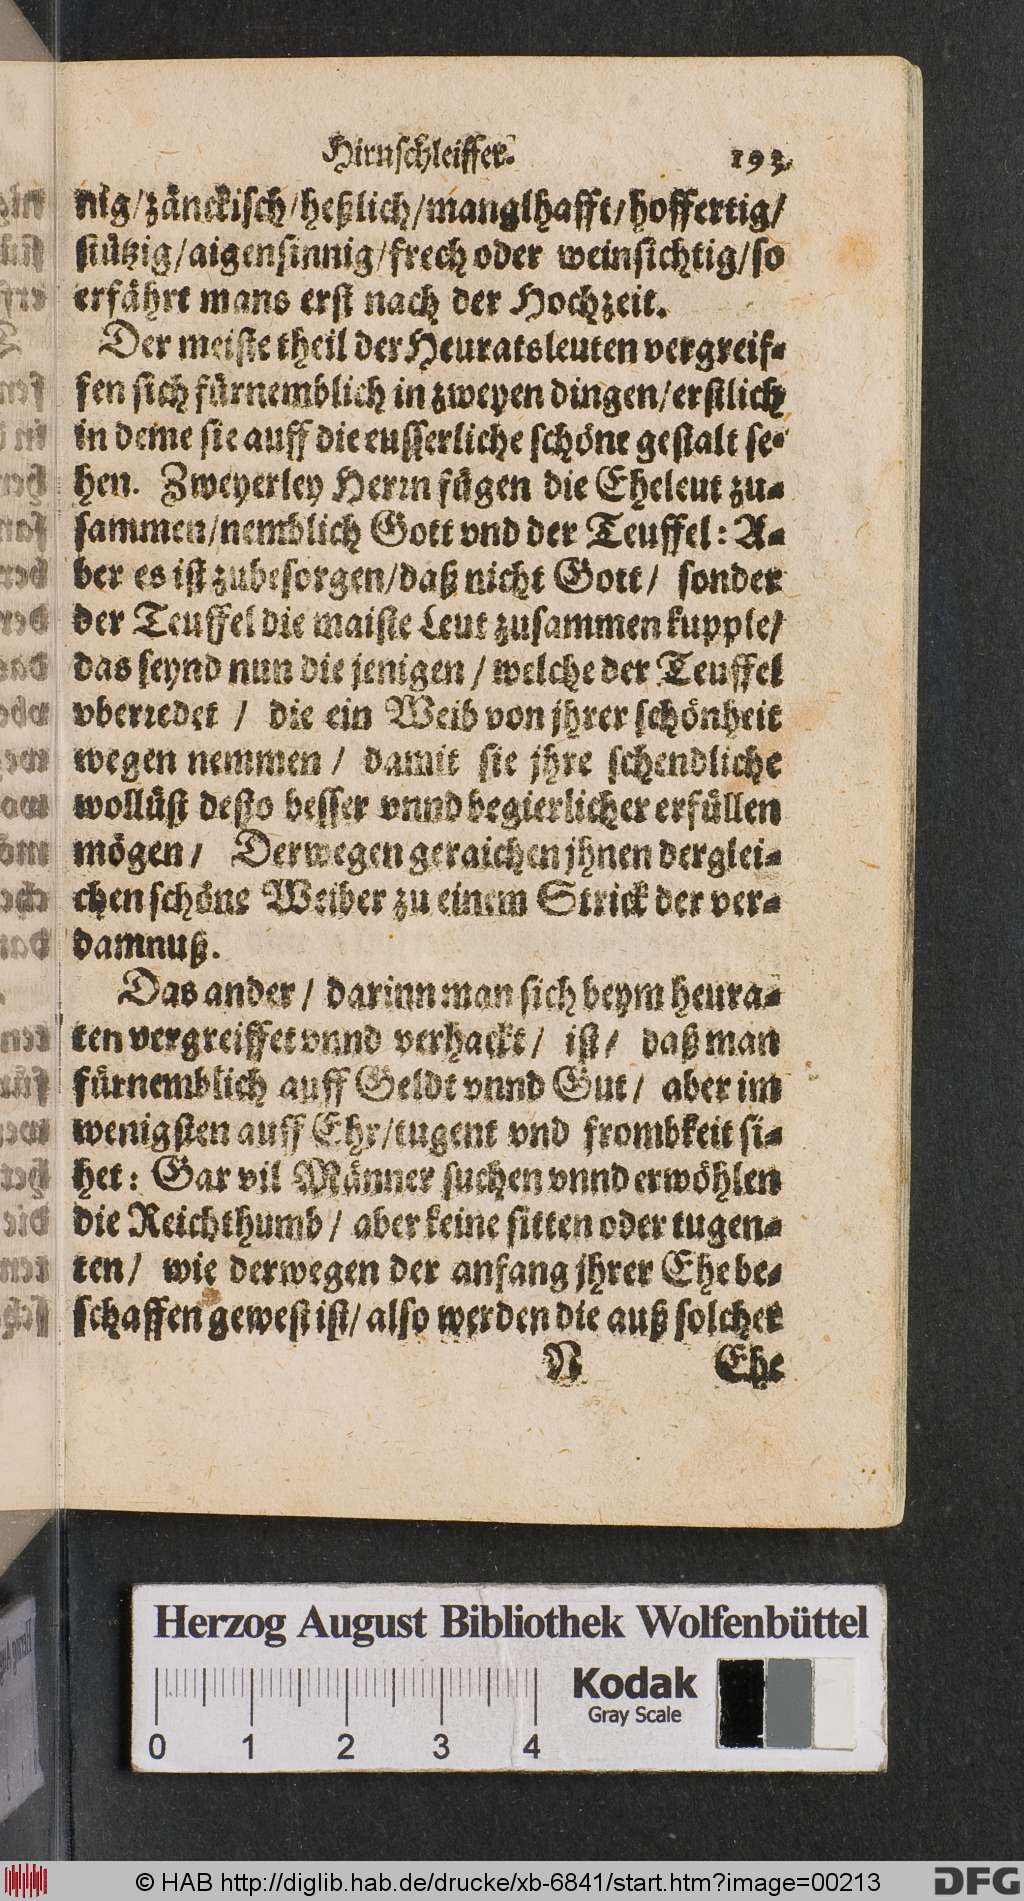 Hirnschleiffer. 193.
nig/zänckisch/heßlich/manglhafft/hoffertig/
stützig/aigensinnig/frech oder weinsichtig/so
erfährt mans erst nach der Hochzeit.
Der meiste theil der Heuratsleuten vergreif-
fen sich fürnemblich in zweyen dingen/erstlich
in deme sie auff die eusserliche schöne gestalt se-
hen. Zweyerley Herrn fügen die Eheleut zu-
sammen/nemblich Gott vnd der Teuffel: A-
ber es ist zubesorgen/daß nicht Gott/ sonder
der Teuffel die maiste Leut zusammen kupple/
das seynd nun die jenigen / welche der Teuffel
vberredet / die ein Weib von jhrer schönheit
wegen nemmen / damit sie jhre schendliche
wollüst desto besser vnnd begierlicher erfüllen
mögen / Derwegen geraichen jhnen derglei-
chen schöne Weiber zu einem Strick der ver-
damnuß.
Das ander / darinn man sich beym heura-
ten vergreiffet vnnd verhackt / ist / daß man
fürnemblich auff Geldt vnnd Gut / aber im
wenigsten auff Ehr/tugent vnd frombkeit si-
het: Gar vil Männer suchen vnnd erwöhlen
die Reichthumb / aber keine sitten oder tugen-
ten / wie derwegen der anfang jhrer Ehe be-
schaffen gewest ist/ also werden die auß solcher
N Ehe
Herzog August Bibliothek Wolfenbüttel
Kodak
Gray Scale
0 1 2 3 4
© HAB http://diglib.hab.de/drucke/xb-6841/start.htm?image=00213
DFG